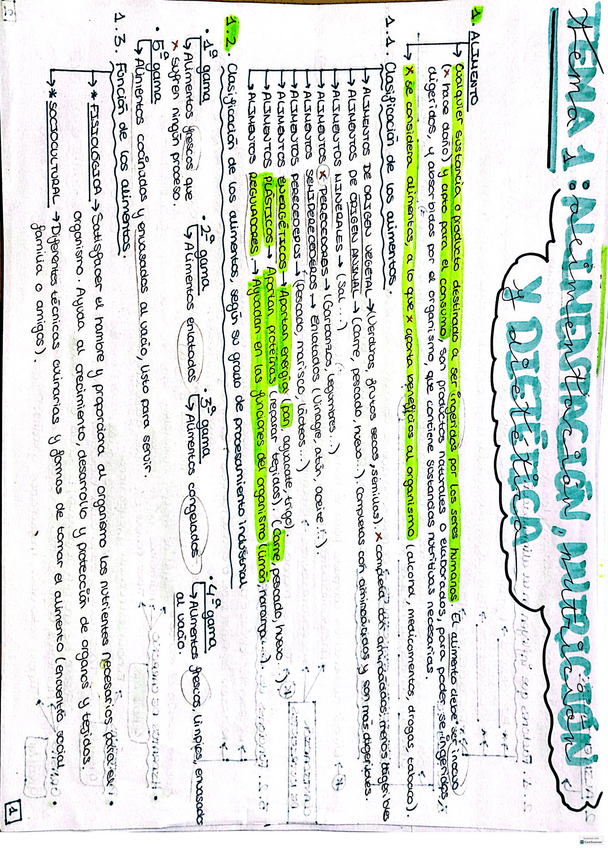 TEMA 1: ALIMENTACIÓN, NUTRICIÓN
Y DIETÉTICA
1. ALIMENTO
↳ Cualquier sustancia o producto destinado a ser ingeridos por los seres humanos. El alimento debe ser inocuo
(x hace daño) y apto para el consumo, son productos naturales o elaborados, para poder ser ingeridos,
digeridos, y absorbidos por el organismo, que contiene sustancias nutritivas necesarias.
x se considera alimentos, a lo que x aporta beneficios al organismo (alcohol, medicamentos, drogas, tabaco).
1.1. Clasificación de los alimentos.
→ ALIMENTOS DE ORIGEN VEGETAL → (Verduras, frutos secos, semillas), x completa con aminoácidos menos digeribles
→ ALIMENTOS DE ORIGEN ANIMAL → (Carne, pescado, huevo...), Completas con aminoácidos y son mas digeribles.
→ ALIMENTOS MINERALES → (Sal...)
→ ALIMENTOS x PERECEDEROS → (Garbanzos, legumbres...)
→ ALIMENTOS SEMIPERECEDEROS → Enlatados (Vinagre, atún, aceite...).
→ ALIMENTOS PERECEDEROS → (Pescado, marisco, lácteos...)
→ ALIMENTOS ENERGÉTICOS → Aportan energía (pan, aguacate, trigo).
→ ALIMENTOS PLÁSTICOS → Aportan proteínas (reparar tejidos). (Carne, pescado, huevo...)
→ ALIMENTOS REGULADORES → Ayudan en las funciones del organismo (limón, naranja...)
1.2. Clasificación de los alimentos, según su grado de procesamiento industrial
• 1ª gama
↳ Alimentos frescos que
x sufren ningún proceso.
• 2ª gama
↳ Alimentos enlatados
• 3ª gama
↳ Alimentos congelados
• 4ª gama
↳ Alimentos frescos, limpios, envasados
al vacío.
• 5ª gama
↳ Alimentos cocinados y envasados al vacío, listo para servir.
1.3. Función de los alimentos.
→ * FISIOLÓGICA → Satisfacer el hambre y proporciona al organismo los nutrientes necesarios para el
organismo. Ayuda al crecimiento, desarrollo y protección de organos y tejidos.
→ * SOCIOCULTURAL → Diferentes técnicas culinarias y formas de tomar el alimento (encuentro social
familia o amigos).
1